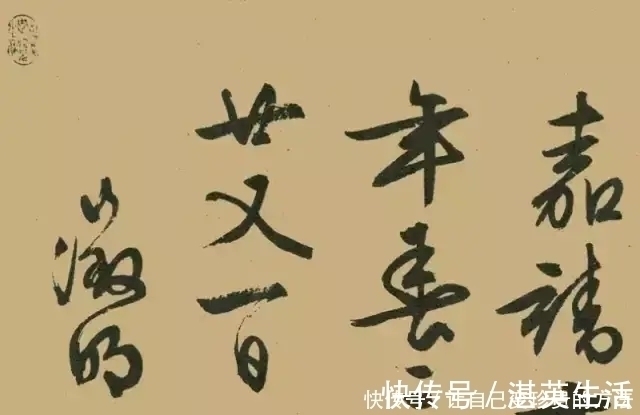 嘉靖
年春
廿又一日
徵明
快传号/湛英生活
快传号 让自己 珍贵的方法